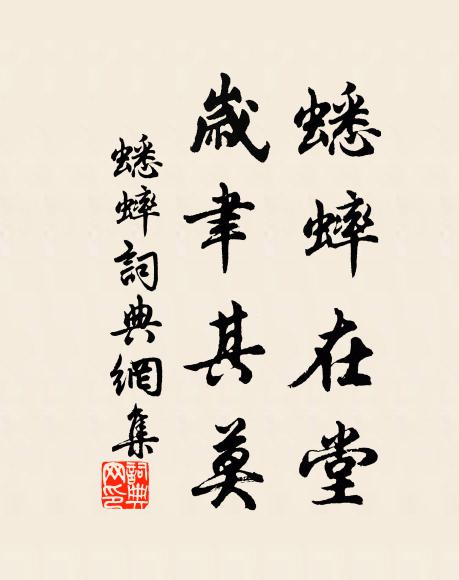 蟋蟀在堂
歲聿其莫
蟋蟀詞典網集
詞典网印